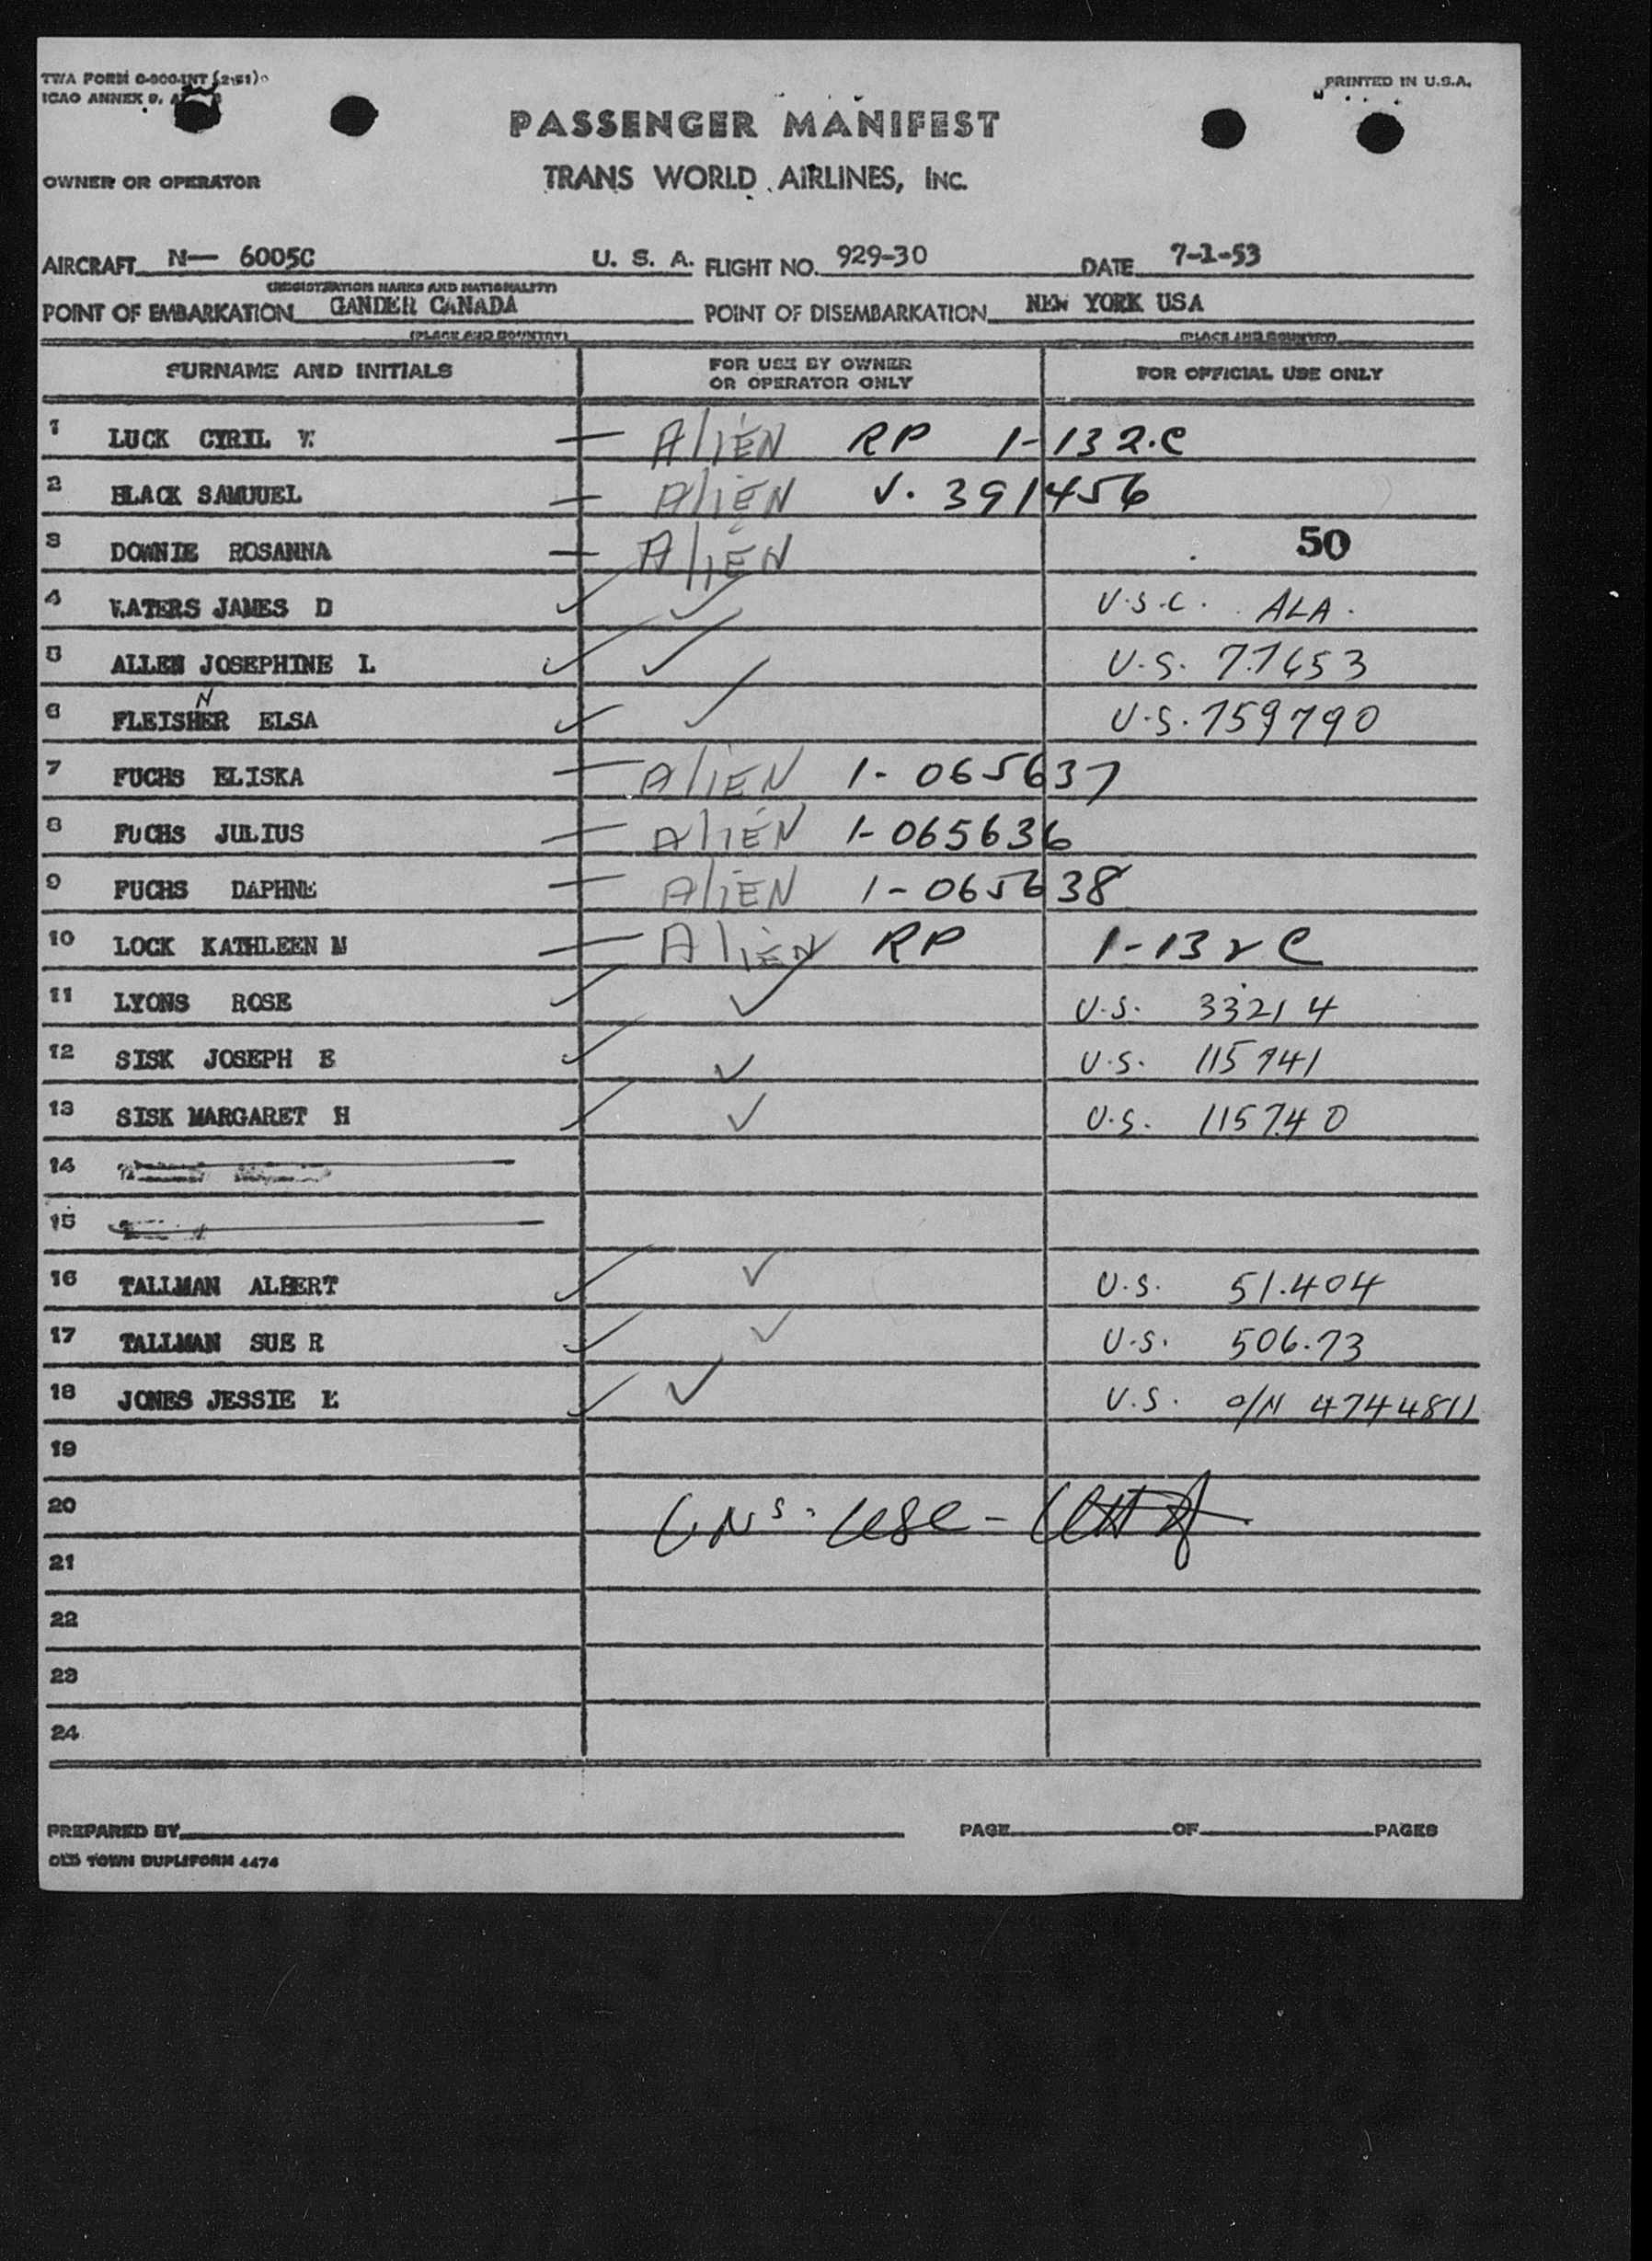 TWA FORM O-800-INT (2-51)
PRINTED IN U.S.A.
ICAO ANNEX 9,
PASSENGER MANIFEST
OWNER OR OPERATOR TRANS WORLD AIRLINES, INC.
AIRCRAFT N— 6005C U. S. A. FLIGHT NO. 929-30 DATE 7-1-53
(REGISTRATION MARKS AND NATIONALITY)
POINT OF EMBARKATION GANDER CANADA POINT OF DISEMBARKATION NEW YORK USA
(PLACE AND COUNTRY) (PLACE AND COUNTRY)
SURNAME AND INITIALS FOR USE BY OWNER OR OPERATOR ONLY FOR OFFICIAL USE ONLY
1 LUCK CYRIL — ALIEN RP 1-132.C
2 BLACK SAMUUEL — ALIEN V. 391456
3 DOWNIE ROSANNA — ALIEN 50
4 WATERS JAMES D U.S.C. ALA.
5 ALLEN JOSEPHINE L U.S. 77653
6 FLEISHNER ELSA U.S. 759790
7 FUCHS ELISKA — ALIEN 1-065637
8 FUCHS JULIUS — ALIEN 1-065636
9 FUCHS DAPHNE — ALIEN 1-065638
10 LOCK KATHLEEN M — ALIEN RP 1-132 C
11 LYONS ROSE U.S. 33214
12 SISK JOSEPH E U.S. 115741
13 SISK MARGARET H U.S. 115740
14
15
16 TALLMAN ALBERT U.S. 51.404
17 TALLMAN SUE R U.S. 506.73
18 JONES JESSIE E U.S. O/N 4744811
19
20
21
22
23
24
PREPARED BY PAGE OF PAGES
OLD TOWN DUPLIFORM 4474